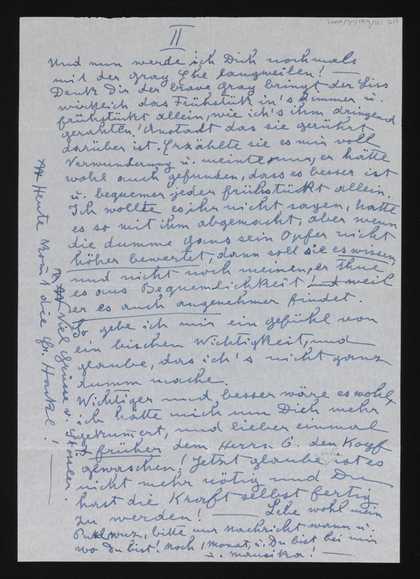 II
Und nun werde ich Dich nochmals
mit der Gray Ehe langweilen! —
Denk Dir der brave Gray bringt der Liss
wirklich das Frühstük in's Zimmer u.
frühstükt allein, wie ich's ihm dringend
geraten! Anstadt das sie gerührt
darüber ist. Erzählte sie es mir voll
Verwunderung u. meinte nur, er hätte
wohl auch gefunden, dass es besser ist
u. bequemer jeder frühstükt allein.
Ich wollte es ihr nicht sagen, hatte
es so mit ihm abgemacht, aber wenn
die dumme Gans sein Opfer nicht
höher bewertet, dann soll sie es wissen
und nicht noch meinen, er thue
es aus Bequemlichkeit! Und weil
er es auch angenehmer findet.
So gebe ich mir ein gefühl von
ein bischen Wichtigkeit, und
glaube, das ich's nicht ganz
dumm mache.
Wichtiger und besser wäre es wohl,
ich hätte mich um Dich mehr
gekümert, und lieber einmal
früher dem Herrn G. den Kopf
gewaschen! Jetzt glaube ist es
nicht mehr nötig und Du
hast die Kraft selbst fertig
zu werden! — Lebe wohl mein
bitte nur nachricht wann u.
wo Du bist! noch 1 Monat, u. Du bist bei mir
u.
Viel Grüsse v.
Heute die Fr.